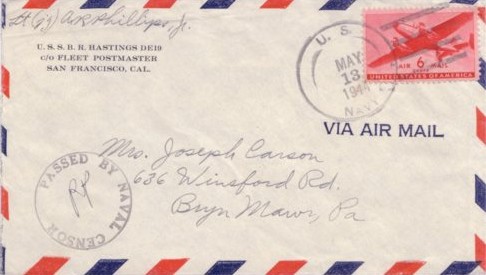 Lt (jg) A R Phillips, Jr.
U. S. S. B. R. HASTINGS DE19
C/O FLEET POSTMASTER
SAN FRANCISCO, CAL.
U. S.
MAY
13
NAVY
AIR 6 MAIL
CENTS
UNITED STATES OF AMERICA
VIA AIR MAIL
Mrs. Joseph Carson
636 Winsford Rd.
Bryn Mawr, Pa
PASSED BY NAVAL CENSOR